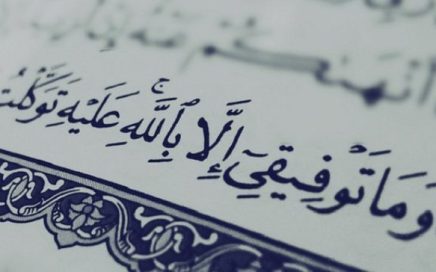 أَنْهَىٰكُمْ عَنْهُ
وَمَا تَوْفِيقِىٓ إِلَّا بِٱللَّهِ ۚ عَلَيْهِ تَوَكَّلْتُ